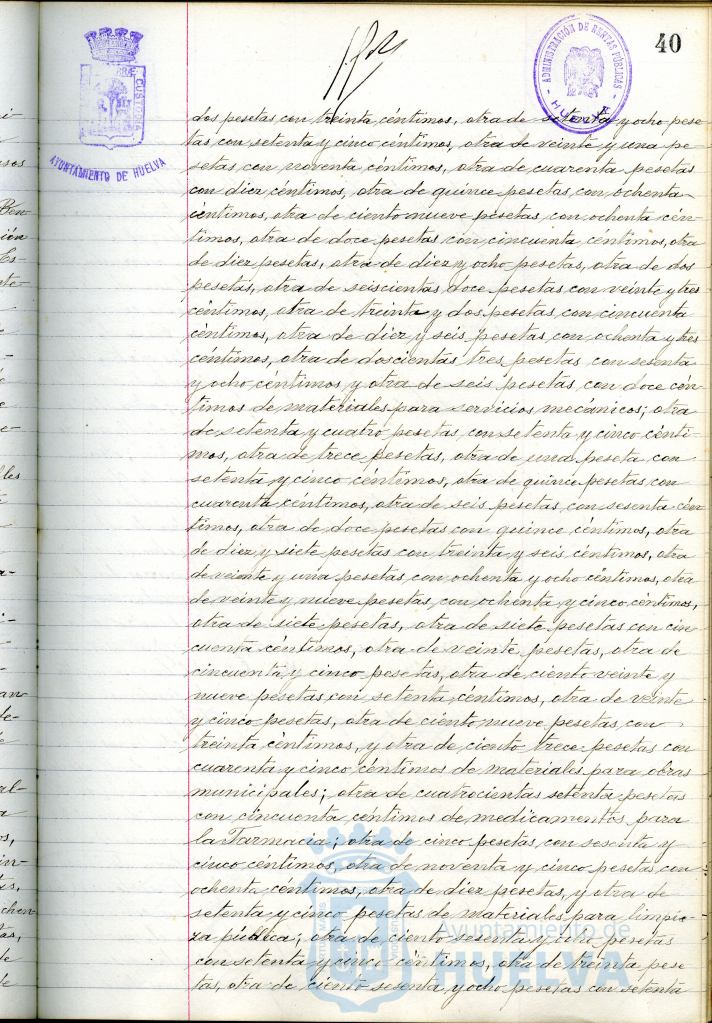 40
ADMINISTRACIÓN DE RENTAS PÚBLICAS
HUELVA
CUSTODIA
AYUNTAMIENTO DE HUELVA
dos pesetas con treinta céntimos, otra de setenta y ocho pese
tas con setenta y cinco céntimos, otra de veinte y una pe
setas con noventa céntimos, otra de cuarenta pesetas
con diez céntimos, otra de quince pesetas con ochenta
céntimos, otra de ciento nueve pesetas con ochenta cén-
timos, otra de doce pesetas con cincuenta céntimos, otra
de diez pesetas, otra de diez y ocho pesetas, otra de dos
pesetas, otra de seiscientas doce pesetas con veinte y tres
céntimos, otra de treinta y dos pesetas con cincuenta
céntimos, otra de diez y seis pesetas con ochenta y tres
centimos, otra de doscientas tres pesetas con sesenta
y ocho céntimos y otra de seis pesetas con doce cén-
timos de materiales para servicios mecánicos; otra
de setenta y cuatro pesetas con setenta y cinco cénti-
mos, otra de trece pesetas, otra de una peseta con
setenta y cinco céntimos, otra de quince pesetas con
cuarenta céntimos, otra de seis pesetas con sesenta cén
timos, otra de doce pesetas con quince céntimos, otra
de diez y siete pesetas con treinta y seis céntimos, otra
de veinte y una pesetas con ochenta y ocho céntimos, otra
de veinte y nueve pesetas con ochenta y cinco céntimos,
otra de siete pesetas, otra de siete pesetas con cin
cuenta céntimos, otra de veinte pesetas, otra de
cincuenta y cinco pesetas, otra de ciento veinte y
nueve pesetas con setenta céntimos, otra de veinte
y cinco pesetas, otra de ciento nueve pesetas con
treinta céntimos, y otra de ciento trece pesetas con
cuarenta y cinco céntimos de materiales para obras
municipales; otra de cuatrocientas setenta pesetas
con cincuenta céntimos de medicamentos para
la Farmacia; otra de cinco pesetas con sesenta y
cinco céntimos, otra de noventa y cinco pesetas con
ochenta céntimos, otra de diez pesetas, y otra de
setenta y cinco pesetas de materiales para limpie-
za pública; otra de ciento sesenta y ocho pesetas
con setenta y cinco céntimos, otra de treinta pese
tas, otra de ciento sesenta y ocho pesetas con setenta
Ayuntamiento de
HUELVA